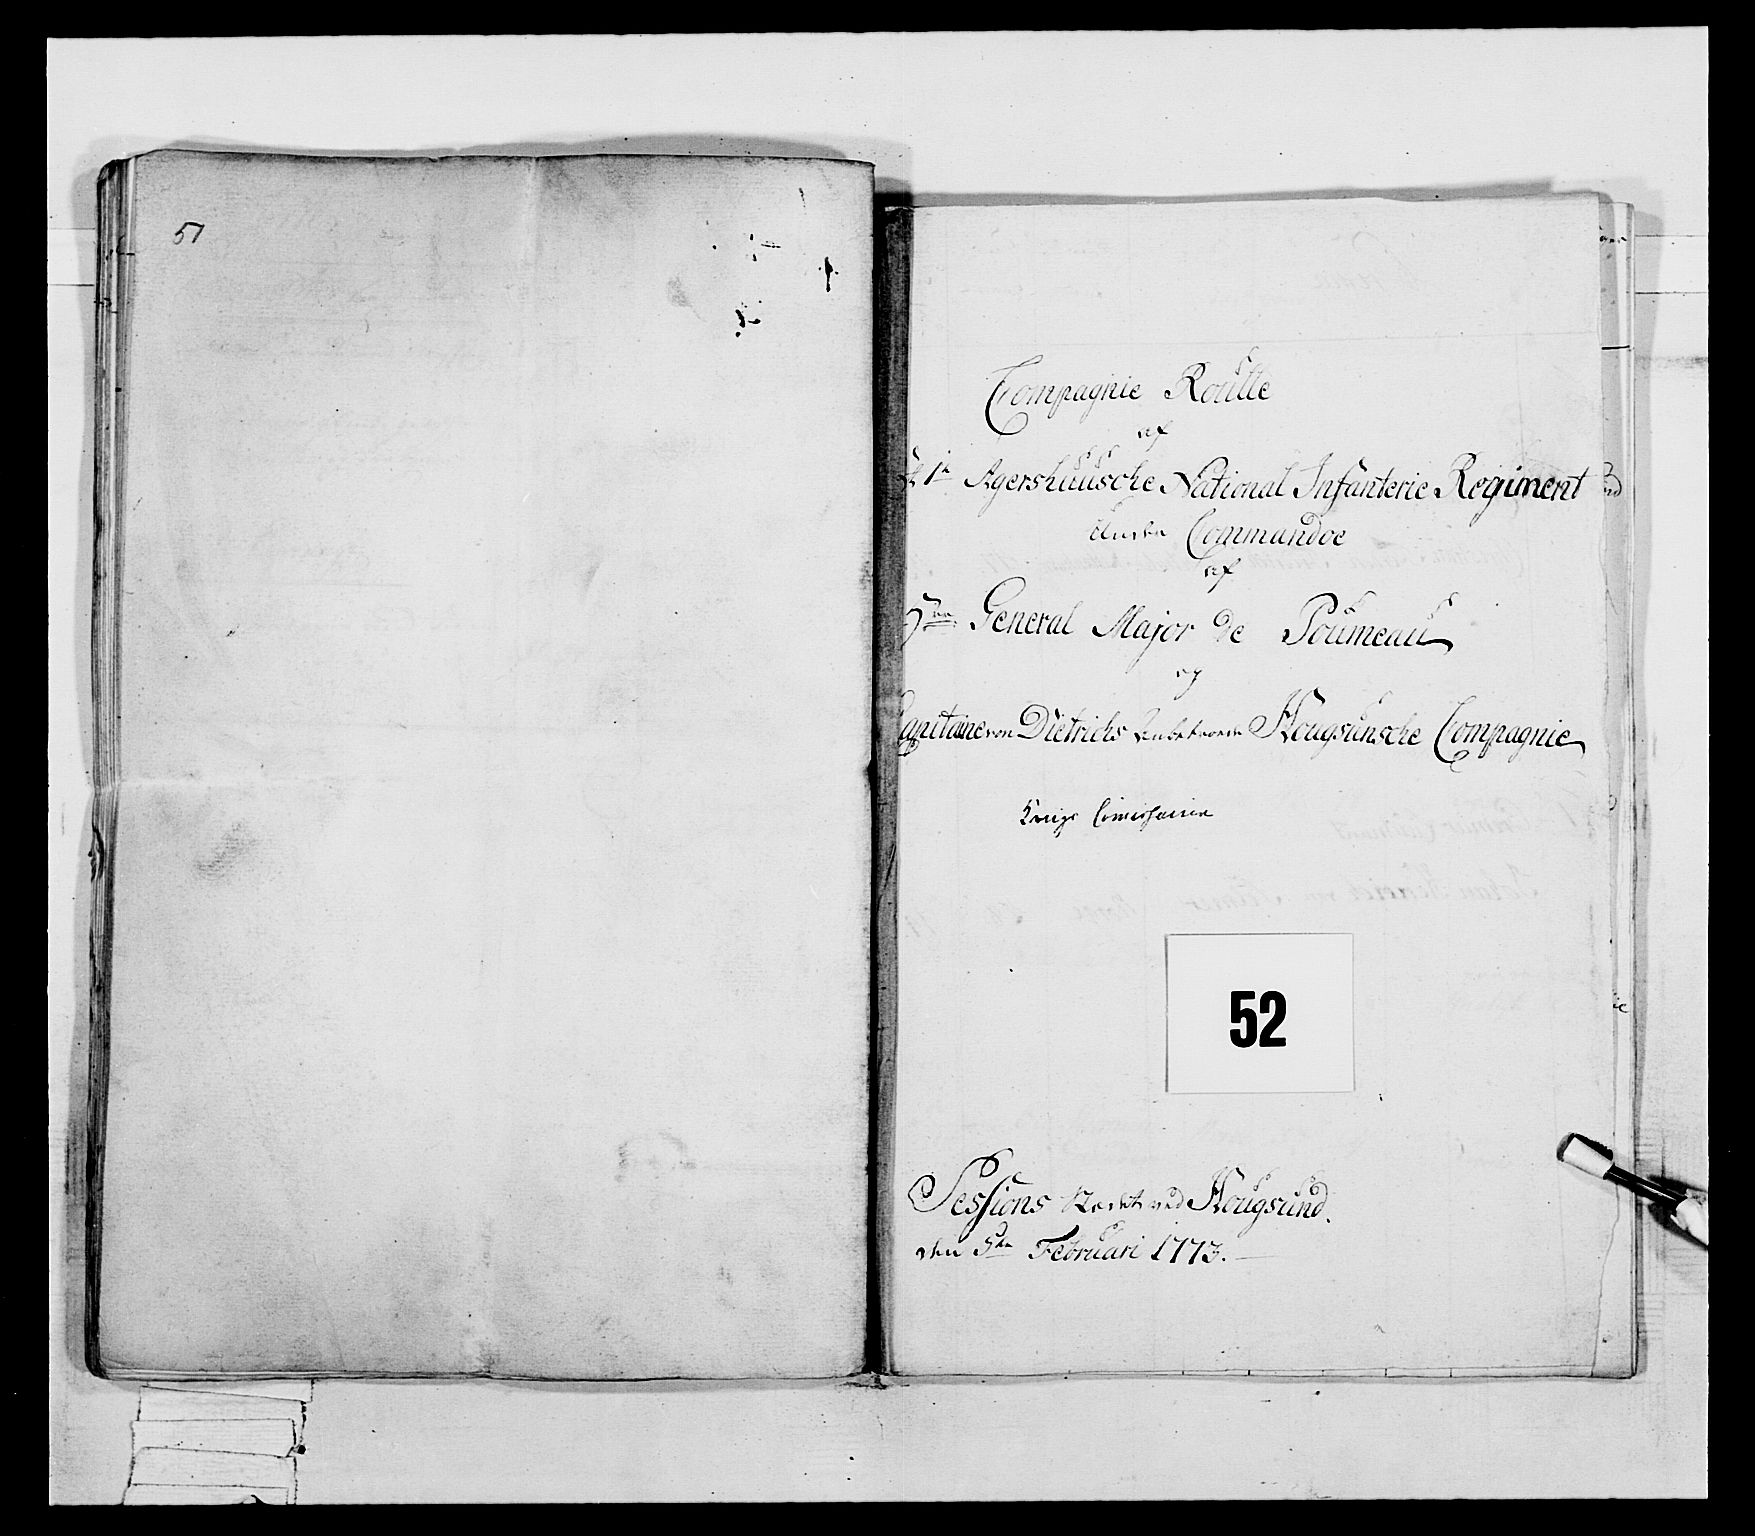 51
Compagnie Roulle
af
1te Agershuusche National Infanterie Regiment
Under Commandoe
af
Hrr General Major de Poumeau
og
Capitaine von Dietrichs Anbetroede Hougsunsche Compagnie
Krigs
52
Sessions Stedet ved Hougsund.
den 5te Februari 1773.